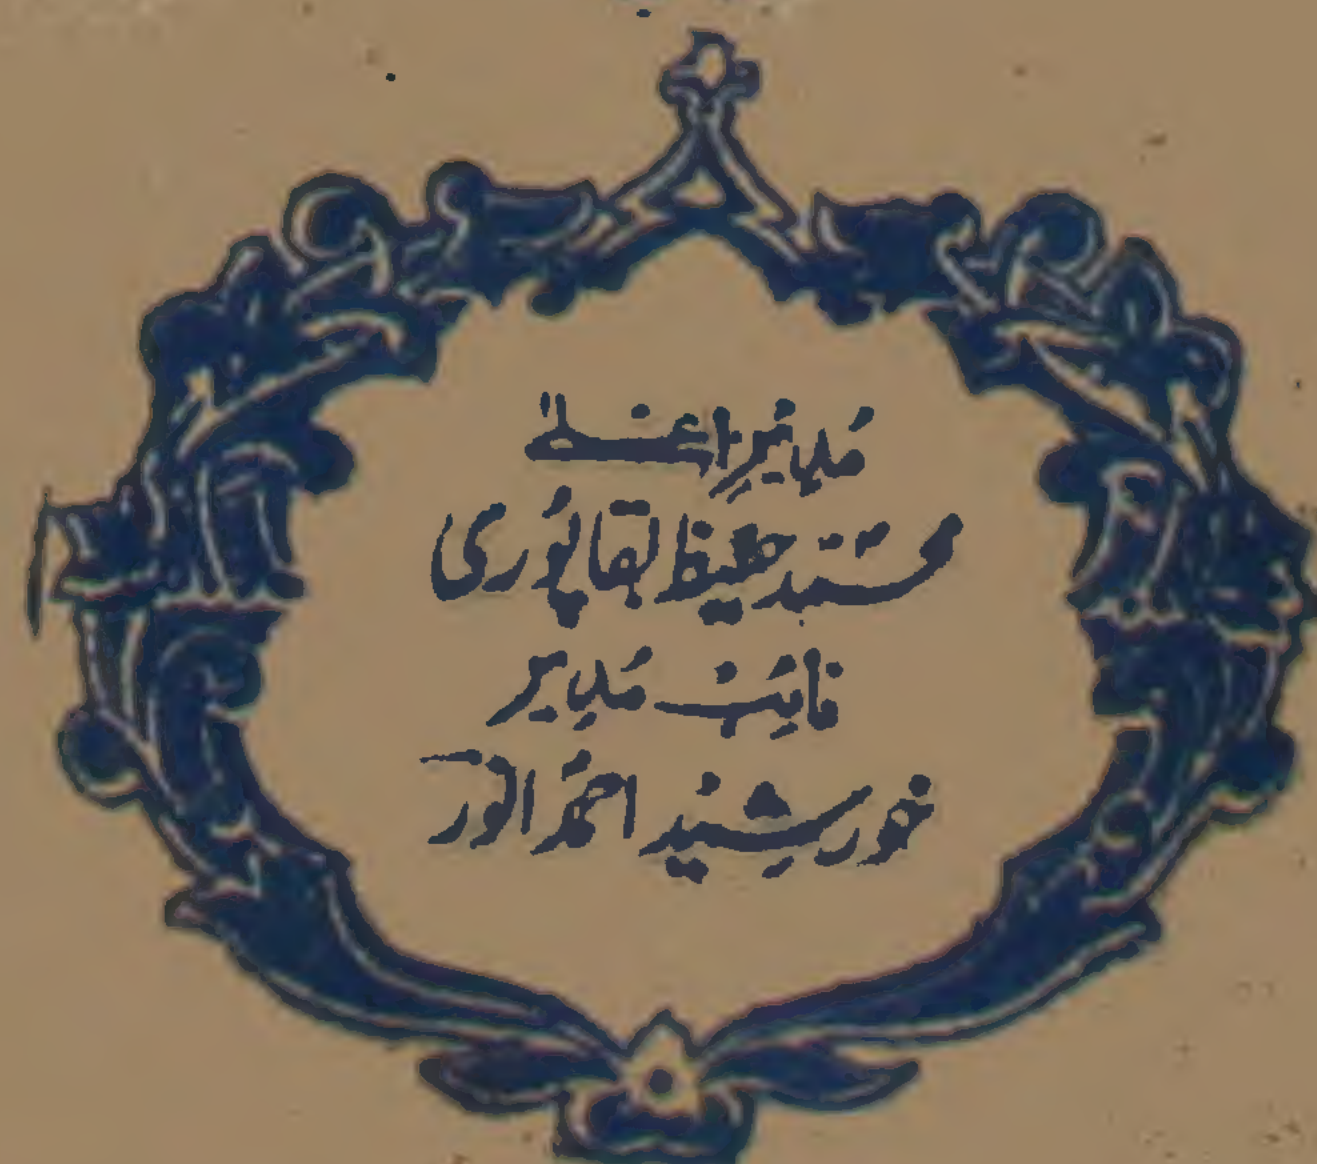 مدیر اعلیٰ
محمد حفیظ بقاپوری
نائب مدیر
خورشید احمد انور